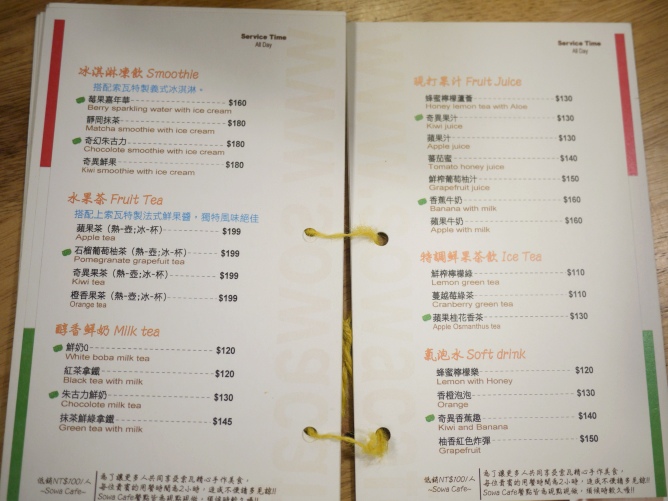 Service Time
All Day
冰淇淋凍飲 Smoothie
搭配索瓦特製義式冰淇淋。
莓果嘉年華 $160
Berry sparkling water with ice cream
靜岡抹茶 $180
Matcha smoothie with ice cream
奇幻朱古力 $180
Chocolote smoothie with ice cream
奇異鮮果 $180
Kiwi smoothie with ice cream
水果茶 Fruit Tea
搭配上索瓦特製法式鮮果醬,獨特風味絕佳
蘋果茶(熱-壺;冰-杯) $199
Apple tea
石榴葡萄柚茶(熱-壺;冰-杯) $199
Pomegranate grapefruit tea
奇異果茶(熱-壺;冰-杯) $199
Kiwi tea
橙香果茶(熱-壺;冰-杯) $199
Orange tea
醇香鮮奶 Milk tea
鮮奶Q $120
White boba milk tea
紅茶拿鐵 $120
Black tea with milk
朱古力鮮奶 $130
Chocolote milk tea
抹茶鮮綠拿鐵 $145
Green tea with milk
低銷NT$100/人
~Sowa Cafe~
為了讓更多人共同享受索瓦精心手作美食,
每位貴賓的用餐時間為2小時,造成不便請多見諒!!
Service Time
All Day
現打果汁 Fruit Juice
蜂蜜檸檬蘆薈 $130
Honey lemon tea with Aloe
奇異果汁 $130
Kiwi juice
蘋果汁 $130
Apple juice
蕃茄蜜 $140
Tomato honey juice
鮮榨葡萄柚汁 $150
Grapefruit juice
香蕉牛奶 $160
Banana with milk
蘋果牛奶 $160
Apple with milk
特調鮮果茶飲 Ice Tea
鮮榨檸檬綠 $110
Lemon green tea
蔓越莓綠茶 $110
Cranberry green tea
蘋果桂花香茶 $130
Apple Osmanthus tea
氣泡水 Soft drink
蜂蜜檸檬樂 $120
Lemon with Honey
香橙泡泡 $130
Orange
奇異香蕉趣 $140
Kiwi and Banana
柚香紅色炸彈 $150
Grapefruit
低銷NT$100/人
~Sowa Cafe~
為了讓更多人共同享受索瓦精心手作美食,
每位貴賓的用餐時間為2小時,造成不便請多見諒!!